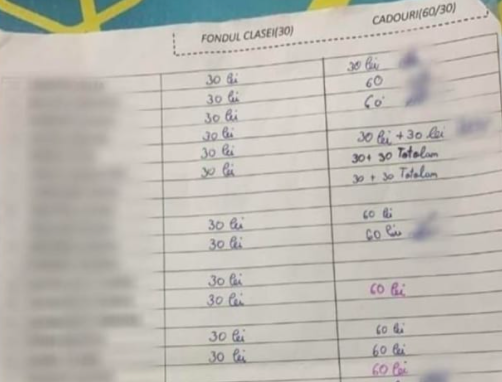 FONDUL CLASEI(30) CADOURI(60/30)
30 lei 30 lei
30 lei 60
30 lei 60
30 lei
30 lei 30 lei + 30 lei
30 lei 30+ 30 Totolan
30 + 30 Totolan
30 lei 60 lei
30 lei 60 lei
30 lei
30 lei 60 lei
30 lei 60 lei
30 lei 60 lei
60 lei